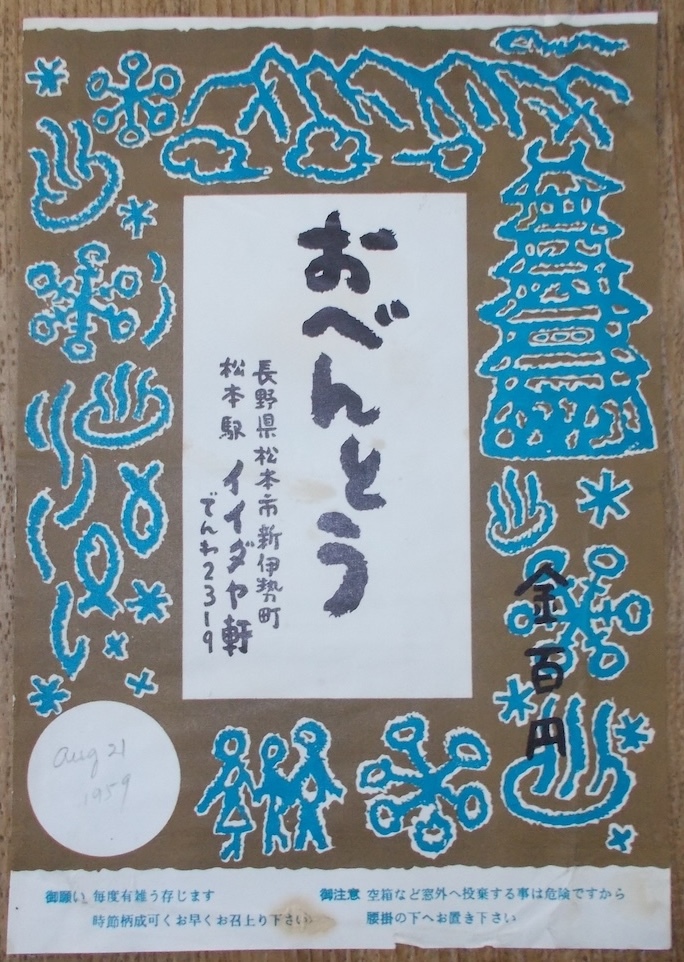 おべんとう
長野県松本市新伊勢町
松本駅 イイダヤ軒
でんわ2319
金百円
Aug 21
1959
御願い 毎度有難う存じます
時節柄成可くお早くお召上り下さい
御注意 空箱など窓外へ投棄する事は危険ですから
腰掛の下へお置き下さい